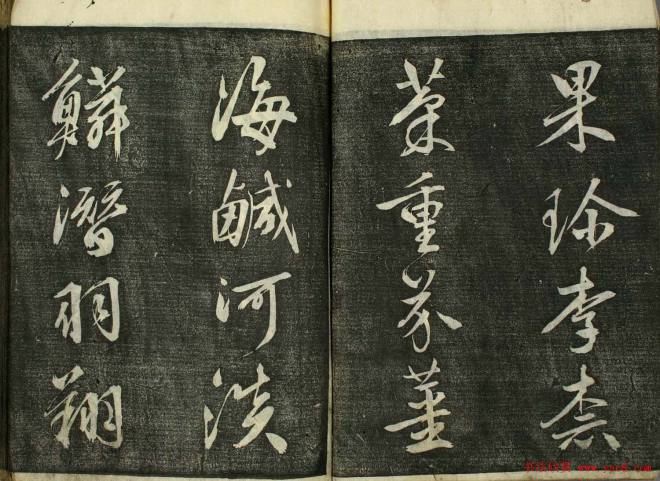 果珍李柰
菜重芥薑
海鹹河淡
鱗潛羽翔